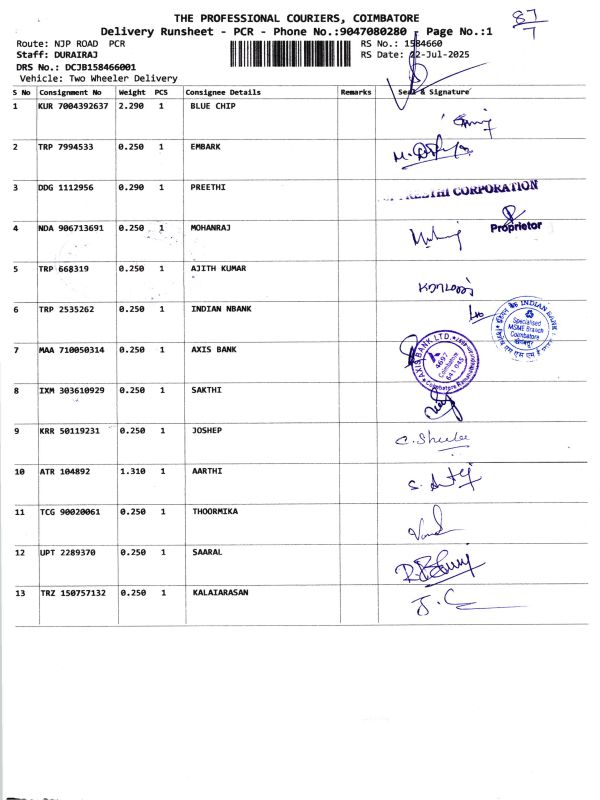 THE PROFESSIONAL COURIERS, COIMBATORE
87/7
Delivery Runsheet - PCR - Phone No.:9047080280 - Page No.:1
Route: NJP ROAD PCR
RS No.: 1584660
Staff: DURAIRAJ
RS Date: 22-Jul-2025
DRS No.: DCJB158466001
Vehicle: Two Wheeler Delivery
S No Consignment No Weight PCS Consignee Details Remarks Seal & Signature
1 KUR 7004392637 2.290 1 BLUE CHIP
2 TRP 7994533 0.250 1 EMBARK
3 DDG 1112956 0.290 1 PREETHI
PREETHI CORPORATION
4 NDA 906713691 0.250 1 MOHANRAJ
Proprietor
5 TRP 668319 0.250 1 AJITH KUMAR
6 TRP 2535262 0.250 1 INDIAN NBANK
INDIAN BANK
Specialised
MSME Branch
Coimbatore
7 MAA 710050314 0.250 1 AXIS BANK
AXIS BANK LTD.
4697
Coimbatore
641 045
8 IXM 303610929 0.250 1 SAKTHI
9 KRR 50119231 0.250 1 JOSHEP
C. Sheela
10 ATR 104892 1.310 1 AARTHI
11 TCG 90020061 0.250 1 THOORMIKA
12 UPT 2289370 0.250 1 SAARAL
13 TRZ 150757132 0.250 1 KALAIARASAN